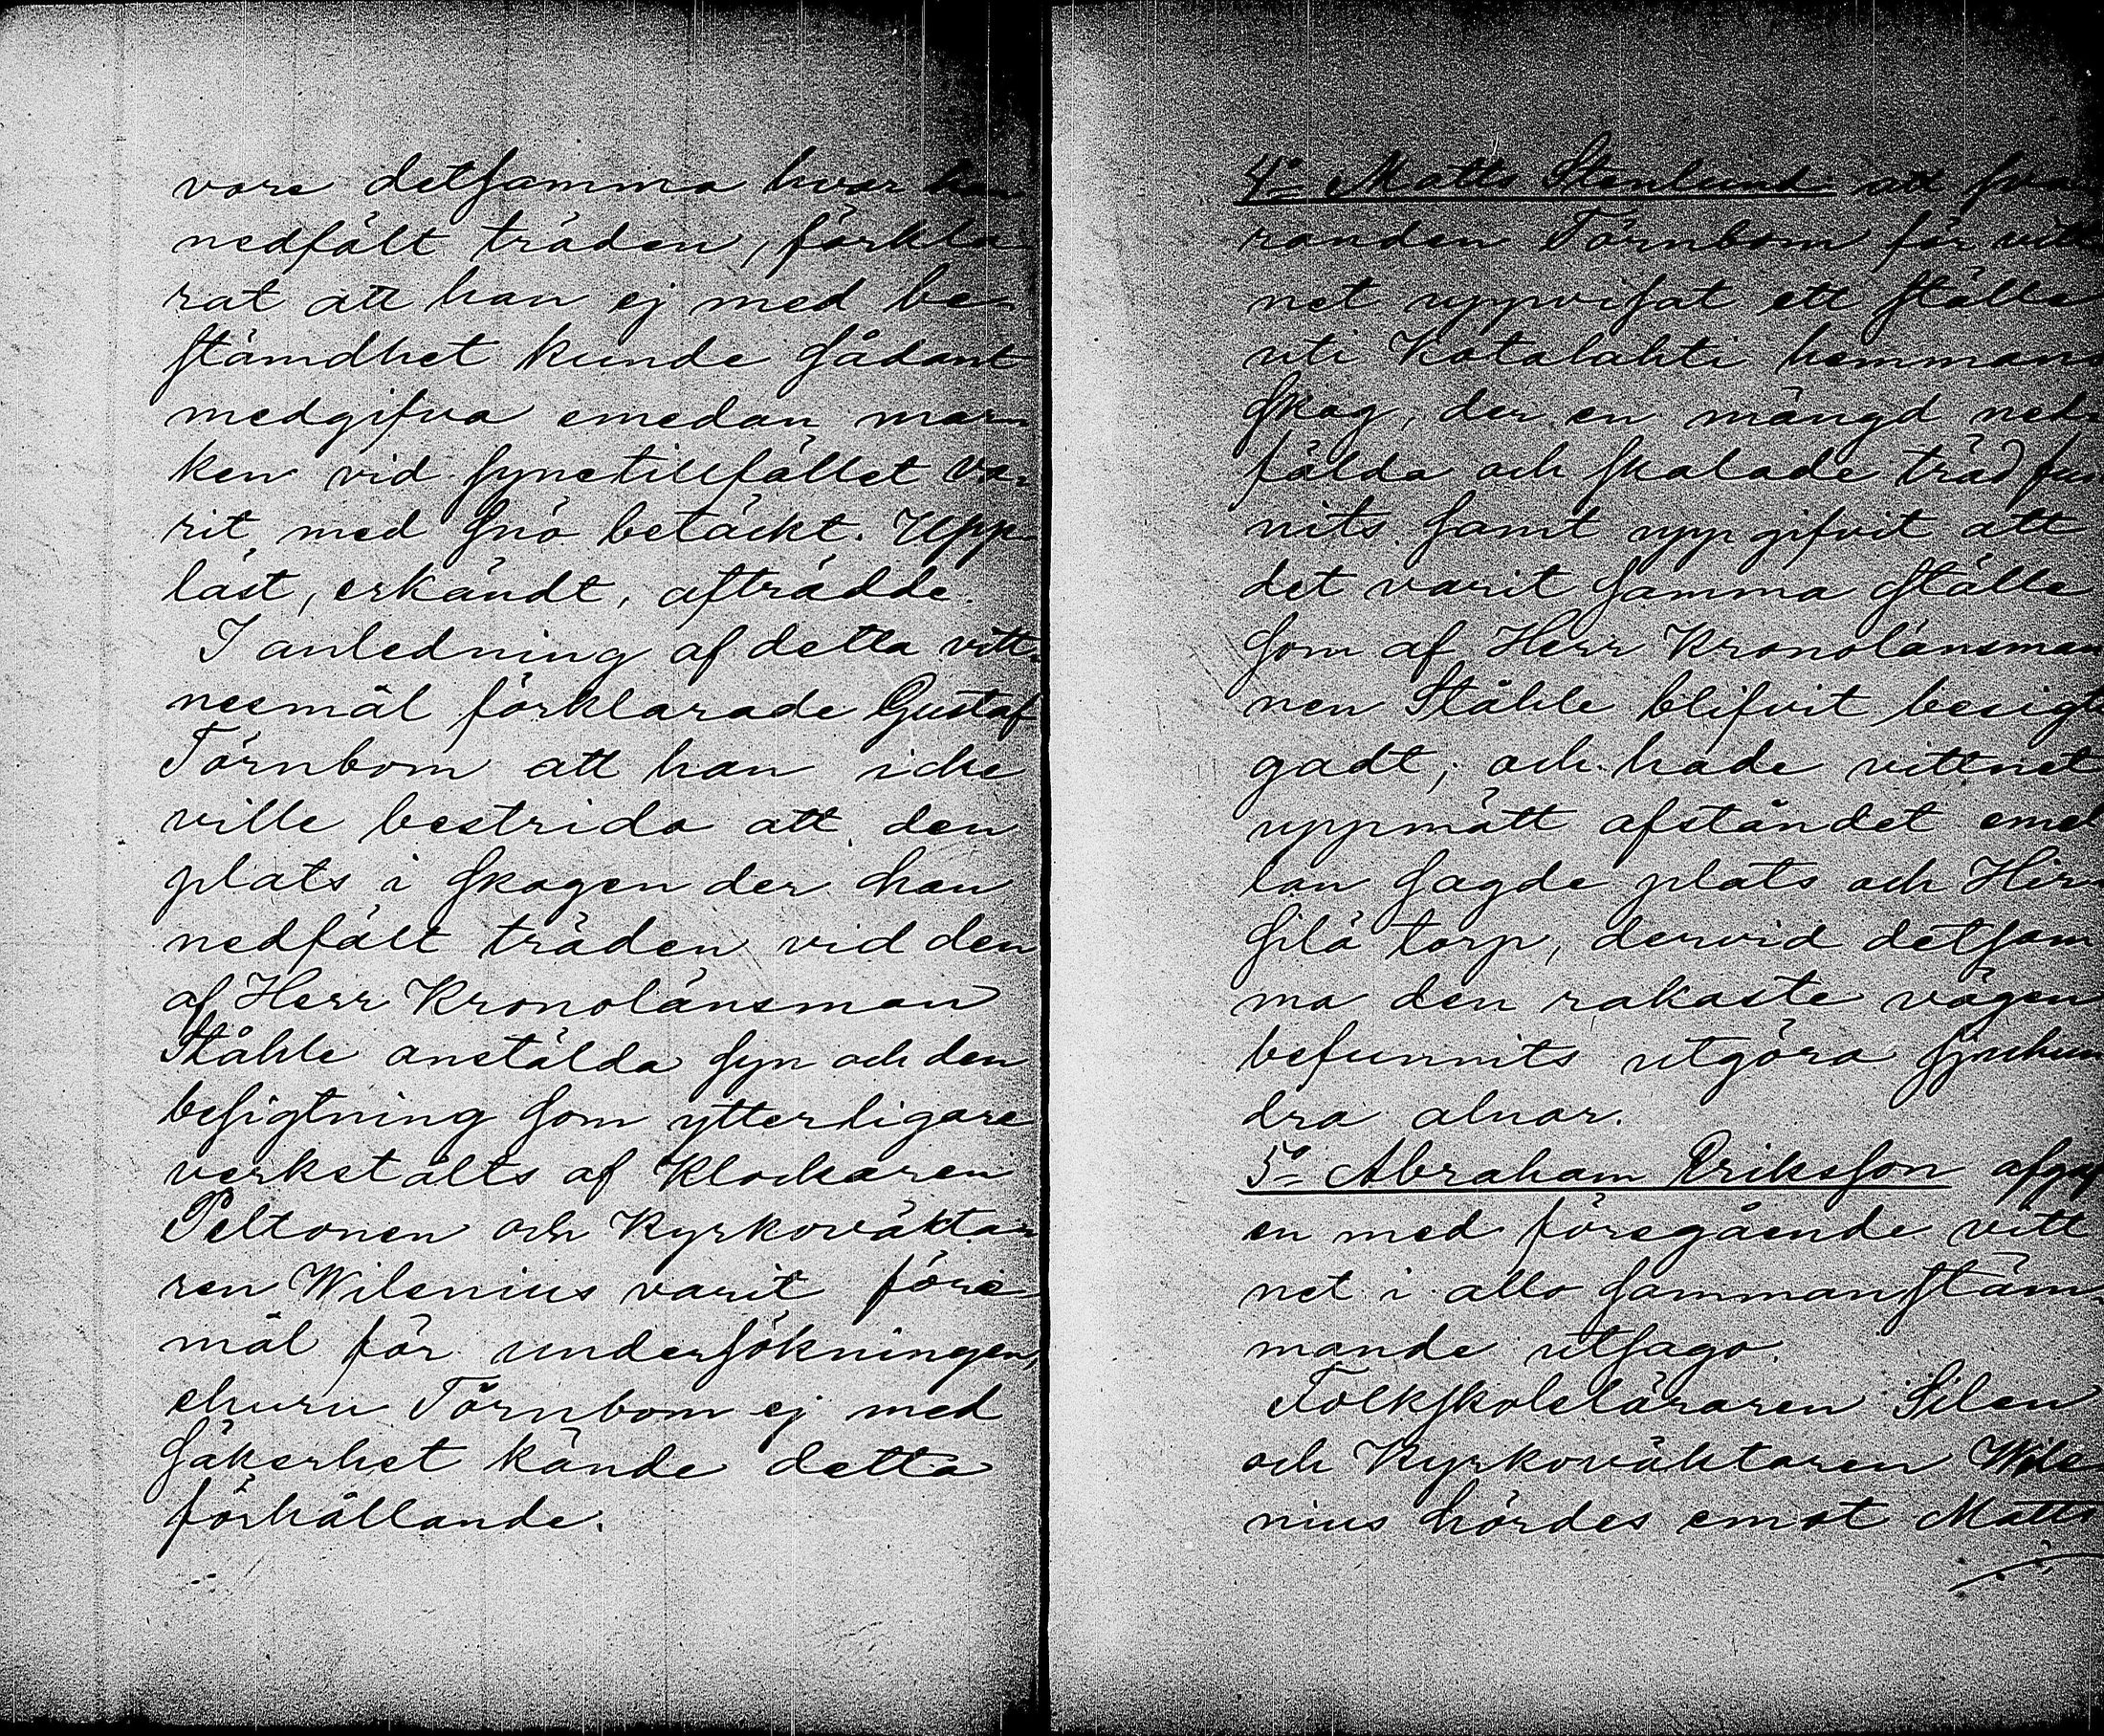 vore detsamma hvar han
nedfält träden, förkla-
rat att han ej med be-
stämdhet kunde sådant
medgifva emedan mar-
ken vid synetillfället va-
rit med snö betäckt. Upp-
läst, erkändt, afträdde.
I anledning af detta vitt-
nesmål förklarade Gustaf
Törnbom att han icke
ville bestrida att den
plats i skogen der han
nedfält träden vid den
af Herr Kronolänsman
Ståhle anstälda syn och den
besigtning som ytterligare
verkstälts af Klockaren
Peltonen och Kyrkoväkta-
ren Wilenius varit före-
mål för undersökningen,
churu Törnbom ej med
säkerhet kände detta
förhållande.
4o Matts Stenlund: att sva-
randen Törnbom för vitt-
net uppvisat ett ställe
uti Kotalahti hemmans
skog, der en mängd ned-
fälda och skalade träd fun-
nits samt uppgifvit att
det varit samma ställe
som af Herr Kronolänsman-
nen Ståhle blifvit besigti-
gadt; och hade vittnet
uppmätt afståndet emel-
lan sagde plats och Hir-
silä torp, dervid detsam-
ma den rakaste vägen
befunnits utgöra sjuhun-
dra alnar.
5o Abraham Eriksson afgaf
en med föregående vitt-
net i allo sammanstäm-
mande utsago.
Folkskoleläraren Silen
och Kyrkoväktaren Wile-
nius hördes emot Matts